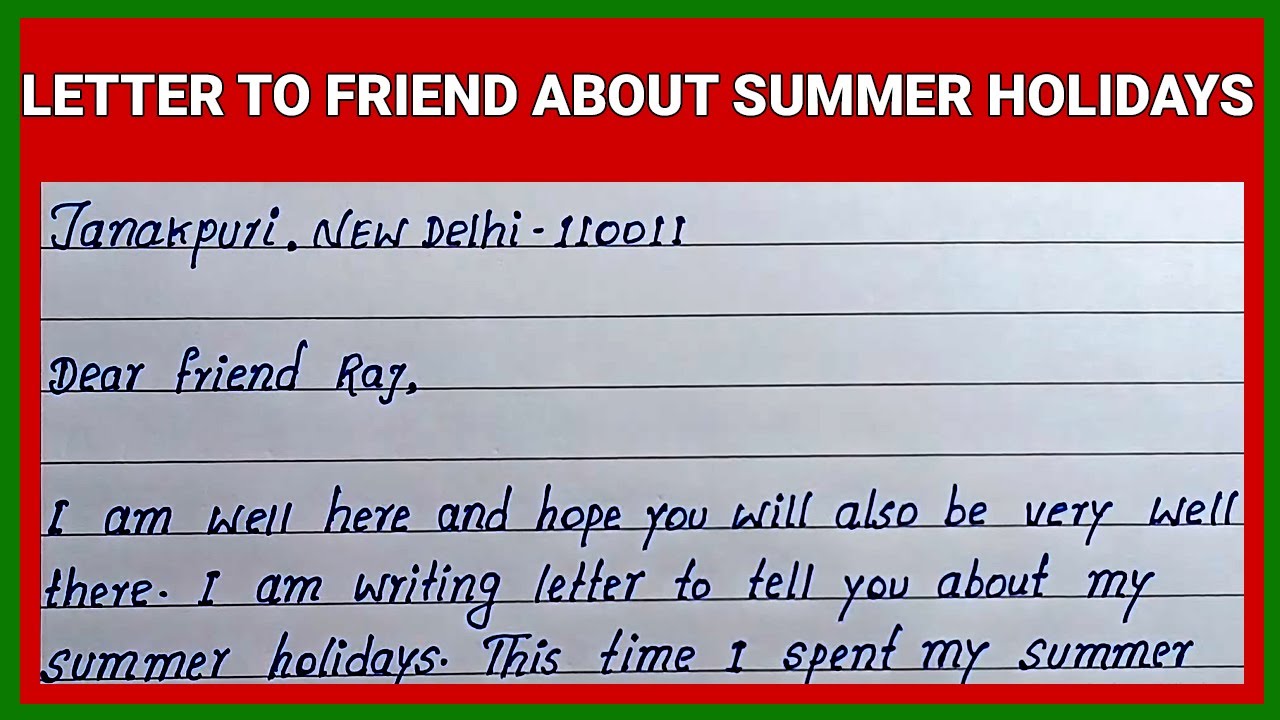 LETTER TO FRIEND ABOUT SUMMER HOLIDAYS
Janakpuri, NEW Delhi - 110011
Dear friend Raj,
I am well here and hope you will also be very well
there. I am writing letter to tell you about my
summer holidays. This time I spent my summer